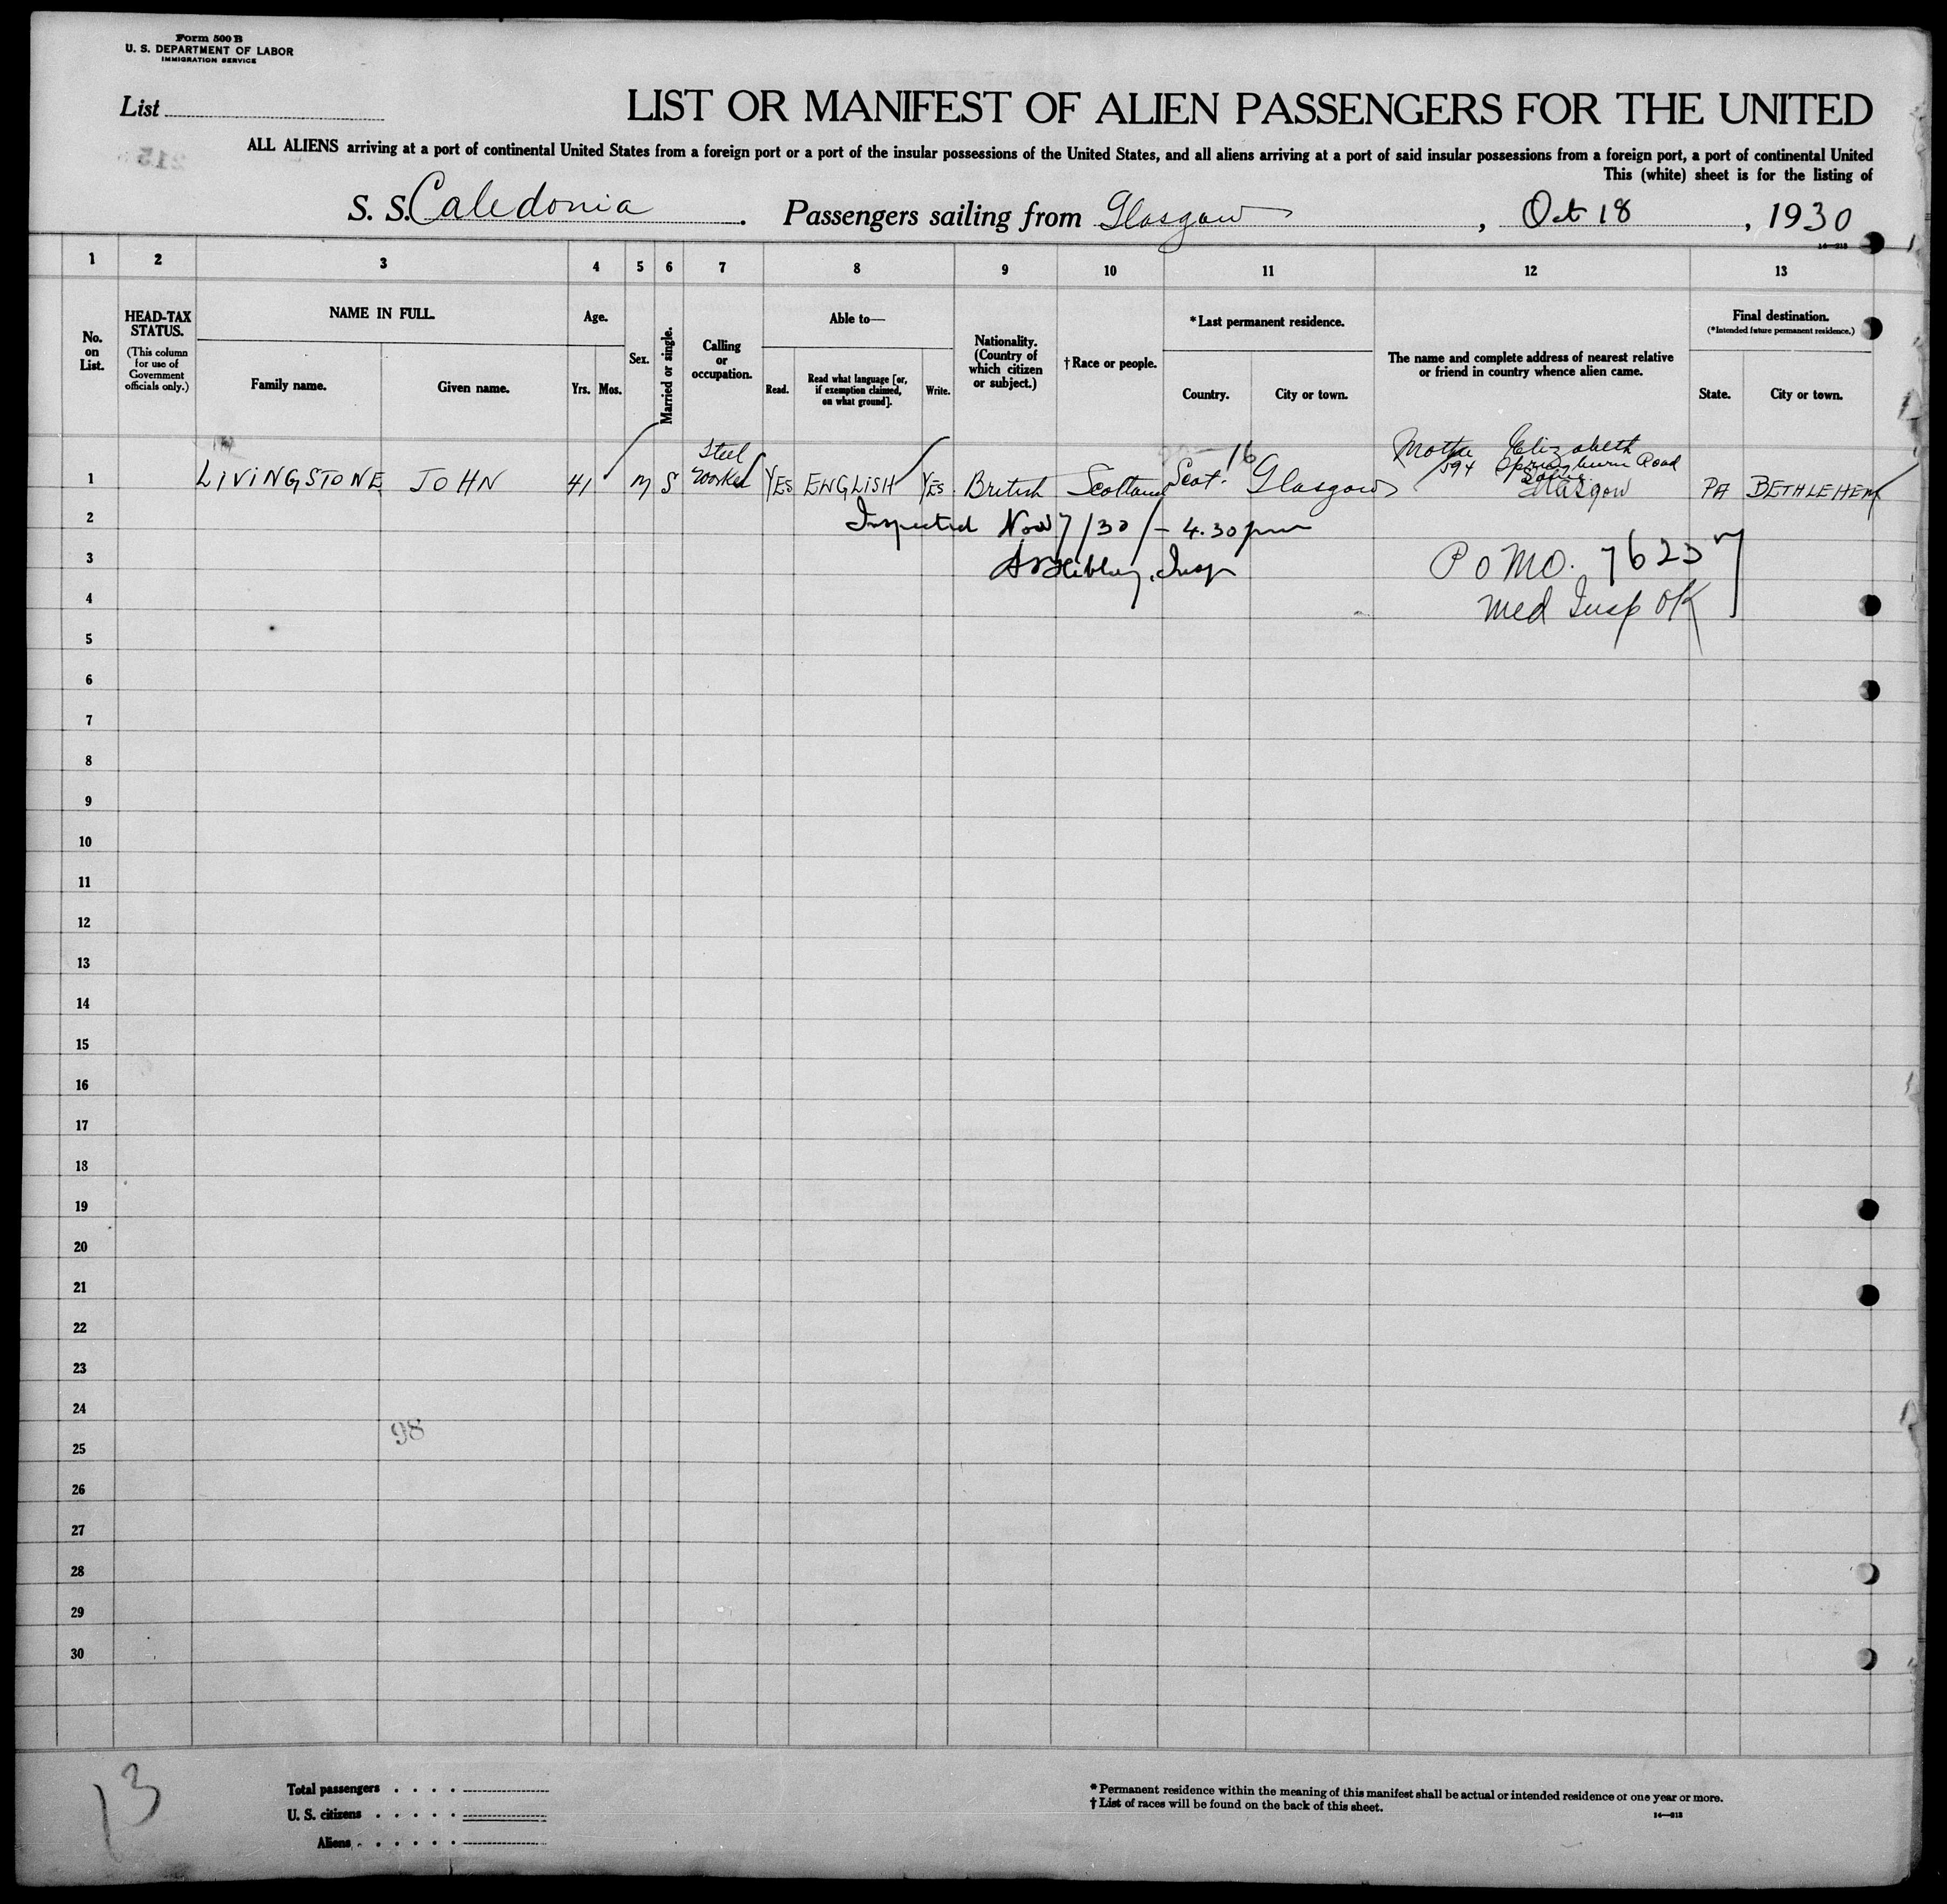 Form 500 B
U. S. DEPARTMENT OF LABOR
IMMIGRATION SERVICE
List
LIST OR MANIFEST OF ALIEN PASSENGERS FOR THE UNITED
ALL ALIENS arriving at a port of continental United States from a foreign port or a port of the insular possessions of the United States, and all aliens arriving at a port of said insular possessions from a foreign port, a port of continental United
This (white) sheet is for the listing of
S. S. Caledonia. Passengers sailing from Glasgow, Oct 18, 1930
1 2 3 4 5 6 7 8 9 10 11 12 13
No. on List.
HEAD-TAX STATUS.
(This column for use of Government officials only.)
NAME IN FULL.
Family name. Given name.
Age.
Yrs. Mos.
Sex.
Married or single.
Calling or occupation.
Able to—
Read. Read what language [or, if exemption claimed, on what ground]. Write.
Nationality. (Country of which citizen or subject.)
†Race or people.
*Last permanent residence.
Country. City or town.
The name and complete address of nearest relative or friend in country whence alien came.
Final destination.
(*Intended future permanent residence.)
State. City or town.
1 LIVINGSTONE JOHN 41 M S Steel worker YES ENGLISH YES British Scotland Scot. 16 Glasgow Mother Elizabeth 594 Springburn Road Glasgow PA BETHLEHEM
2 Inspected Nov 7/30 - 4.30 pm
3 Insp PoMO. 7623
4 Med Insp OK
5
6
7
8
9
10
11
12
13
14
15
16
17
18
19
20
21
22
23
24
98
25
26
27
28
29
30
13
Total passengers
U. S. citizens
Aliens
*Permanent residence within the meaning of this manifest shall be actual or intended residence of one year or more.
†List of races will be found on the back of this sheet.